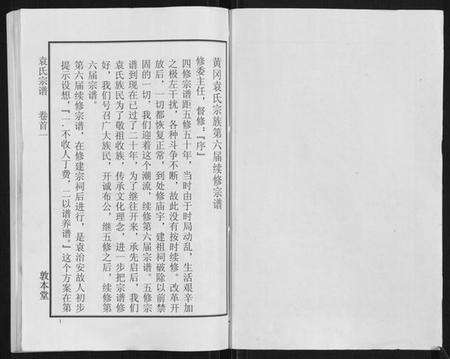 黄冈袁氏宗族第六届续修宗谱
修委主任，督修：『序』
四修宗谱距五修五十年，当时由于时局动乱，生活艰辛加
之极左干扰，各种斗争不断，故此没有按时续修。改革开
放后，一切都恢复正常，到处修庙宇，建祖祠破除以前禁
固的一切。我们迎着这个潮流，续修第六届宗谱。五修宗
谱到现在已过了二十年，为了继往开来，承先启后，我们
袁氏族民为了敬祖收族，传承文化理念，进一步把宗谱修
好，我们号召广大族民，开诚布公，继五修之后，续修第
六届宗谱。
第六届续修宗谱，在修建宗祠后进行，是袁治安故人初步
提示设想，『一·不收人丁费，二以谱养谱。』这个方案在第
袁氏宗谱 卷首一
敦本堂
1